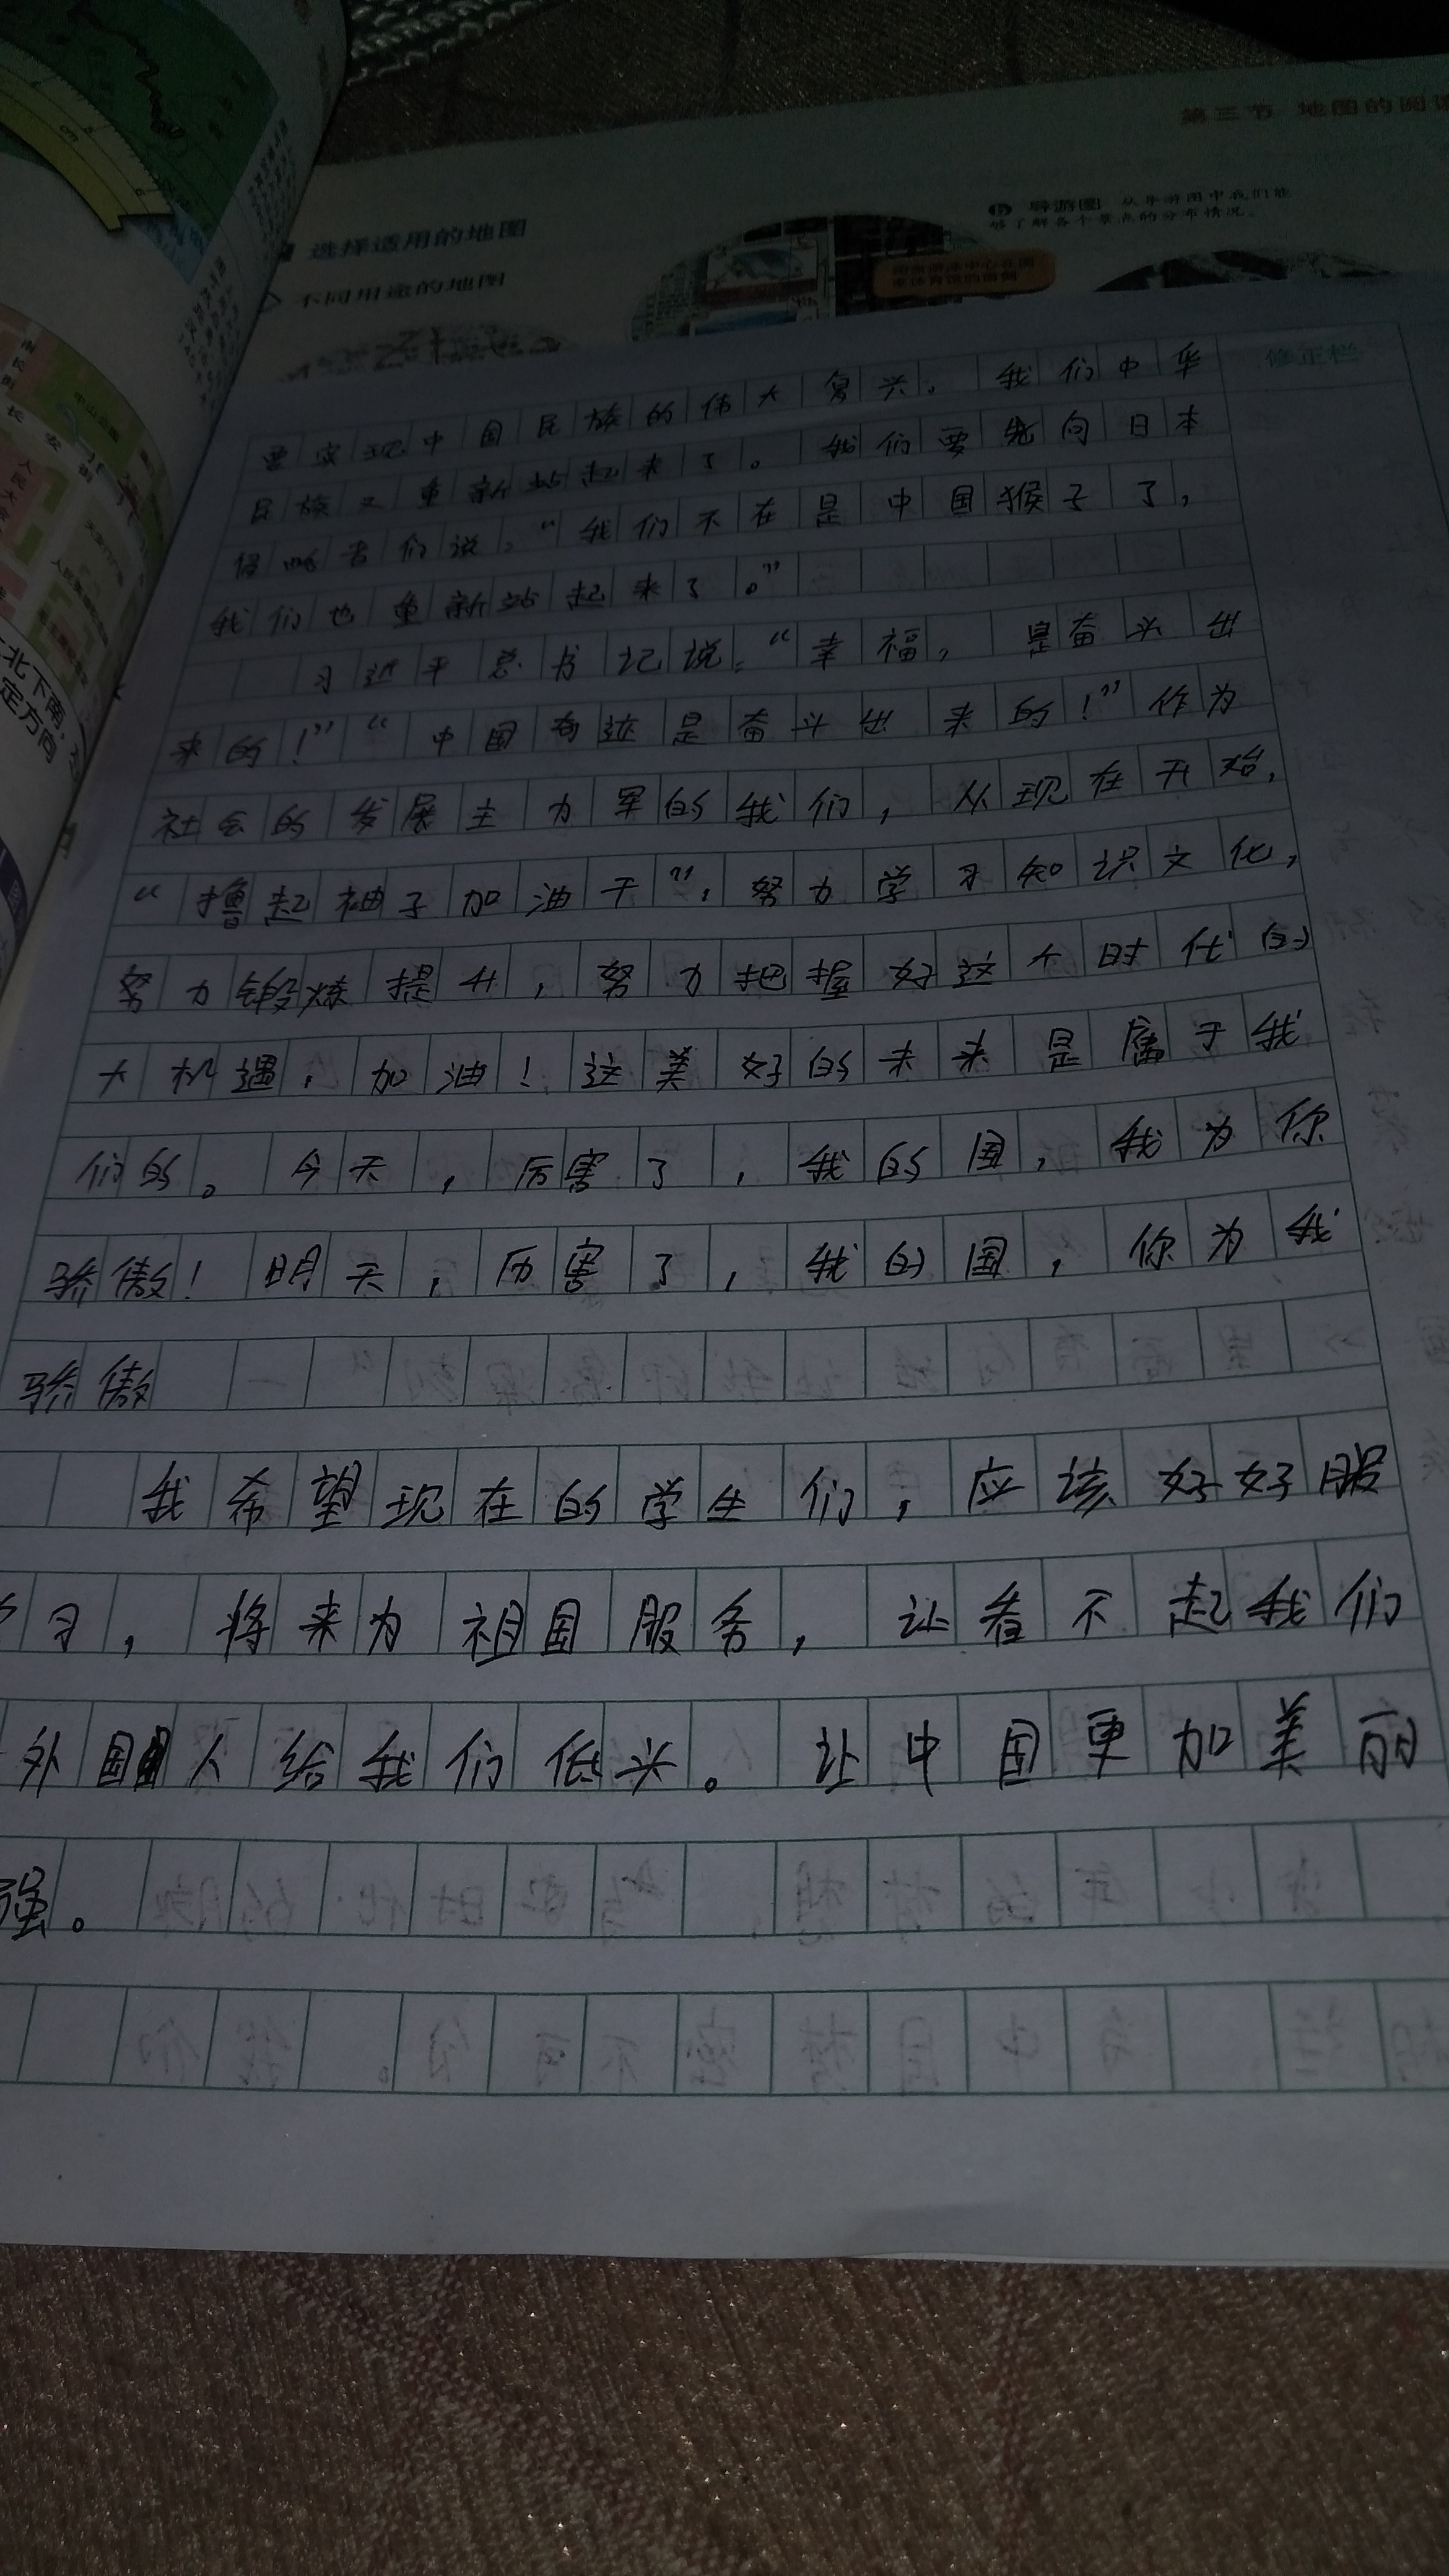 第三节 地图的阅
导游图 从导游图中我们能
够了解各个景点的分布情况。
选择适用的地图
不同用途的地图
修正栏
中山公园
北下南,
定方向
要实现中国民族的伟大复兴。我们中华
民族又重新站起来了。我们要先向日本
侵略者们说:“我们不在是中国猴子了,
我们也重新站起来了。”
习近平总书记说:“幸福,是奋斗出
来的!”“中国奇迹是奋斗出来的!”作为
社会的发展主力军的我们,从现在开始,
“撸起袖子加油干”,努力学习知识文化,
努力锻炼提升,努力把握好这个时代的
大机遇,加油!这美好的未来是属于我
们的。今天,厉害了,我的国,我为你
骄傲!明天,厉害了,我的国,你为我
骄傲
我希望现在的学生们,应该好好服
习,将来为祖国服务,让看不起我们
外国人给我们低头。让中国更加美丽
强。